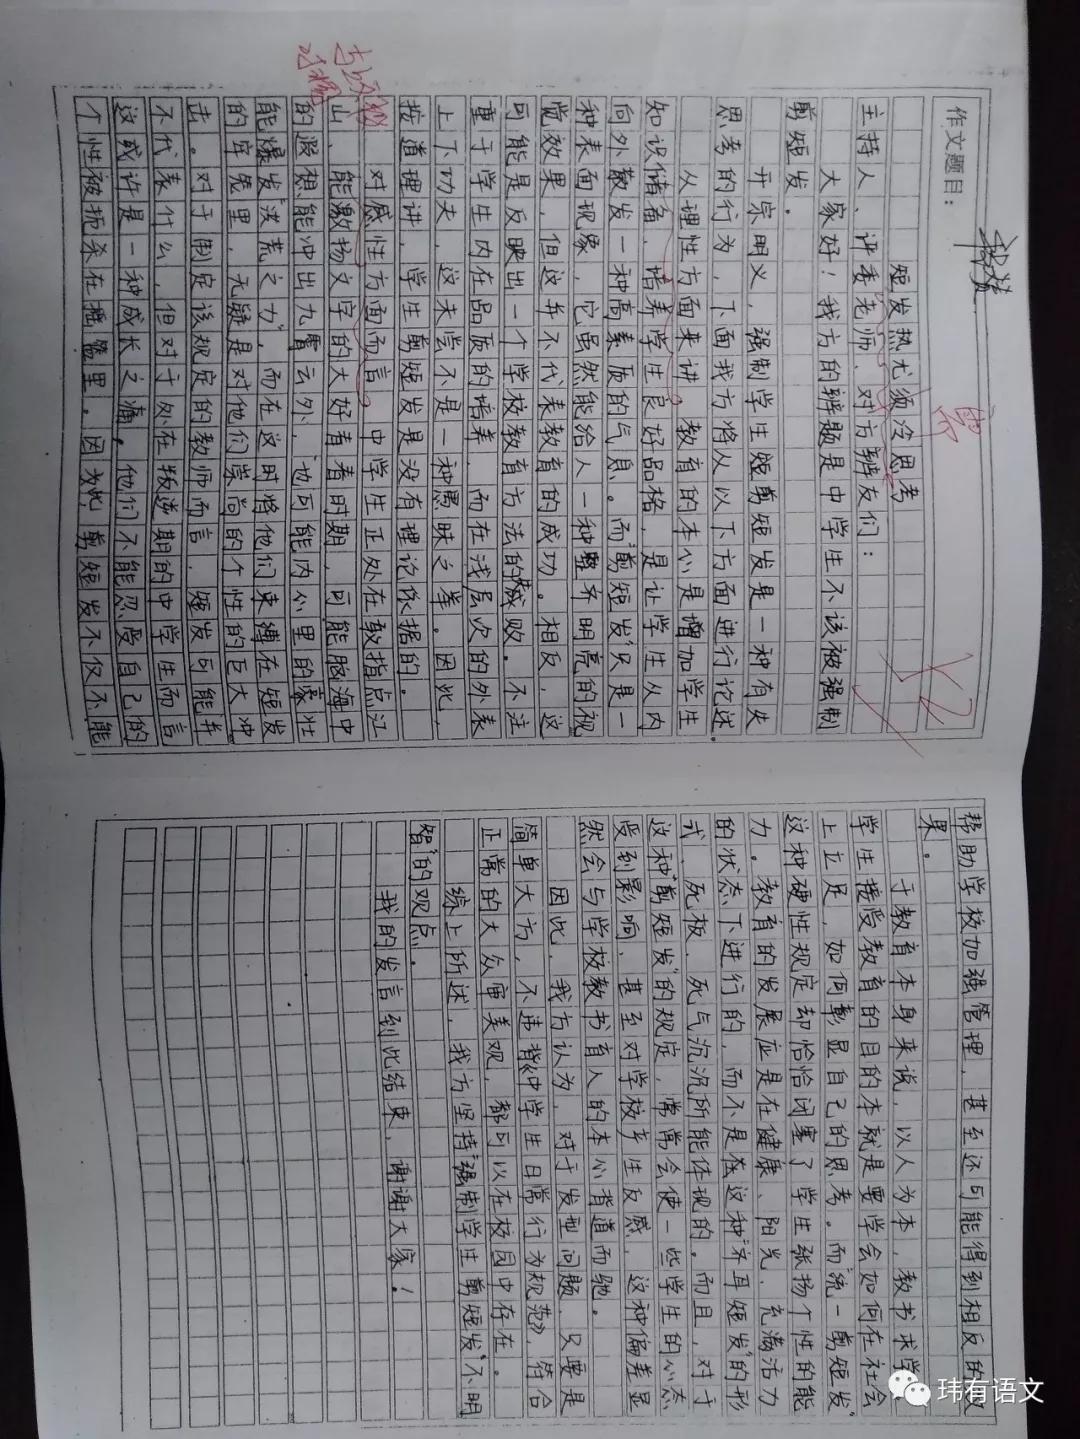 作文题目：
短发热尤须冷思考
主持人、评委老师、对方辩友们：
大家好！我方的辨题是中学生不该被强制
剪短发。
开宗明义，强制学生短剪短发是一种有失
思考的行为，下面我方将从以下方面进行论述。
从理性方面来讲。教育的本心是增加学生
知识储备，培养学生良好品格，是让学生从内
向外散发一种高素质的气息。而“剪短发”只是一
种表面现象，它虽然能给人一种整齐明亮的视
觉效果，但这并不代表教育的成功。相反，这
可能是反映出一个学校教育方法的城败。不注
重于学生内在品质的培养，而在浅层次的外表
上下功夫，这未尝不是一种愚昧之举。因此，
按道理讲，学生剪短发是没有理论依据的。
对感性方面而言。中学生正处在敢指点江
山、能激扬文字的大好青春时期，可能脑海中
的遐想能冲出九霄云外，也可能内心里的豪壮
能爆发“洪荒之力”，而在这时将他们束缚在短发
的牢笼里，无疑是对他们崇尚的个性的巨大冲
击。对于制定该规定的教师而言，短发可能并
不代表什么，但对于处在叛逆期的中学生而言
这或许是一种成长之痛，他们不能忍受自己的
个性被扼杀在摇篮里。因为此，剪短发不仅不能
帮助学校加强管理，甚至还可能得到相反的效
果。
于教育本身来说，以人为本，教书求学，
学生接受教育的目的本就是要学会如何在社会
上立足，如何彰显自己的思考。而“统一剪短发”
这种硬性规定却恰恰闭塞了学生张扬个性的能
力。教育的发展应是在健康、阳光、充满活力
的状态下进行的，而不是在这种“齐耳短发”的形
式、死板、死气沉沉所能体现的。而且，对于
这种“剪短发”的规定，常常会使一些学生的心态
受到影响，甚至对学校产生反感，这种偏差显
然会与学校教书育人的本心背道而驰。
因此，我方认为，对于发型问题，只要是
简单大方，不违背《中学生日常行为规范》，符合
正常的大众审美观，都可以在校园中存在。
综上所述，我方坚持“强制学生剪短发”不明
智”的观点。
我的发言到此结束，谢谢大家！
玮有语文